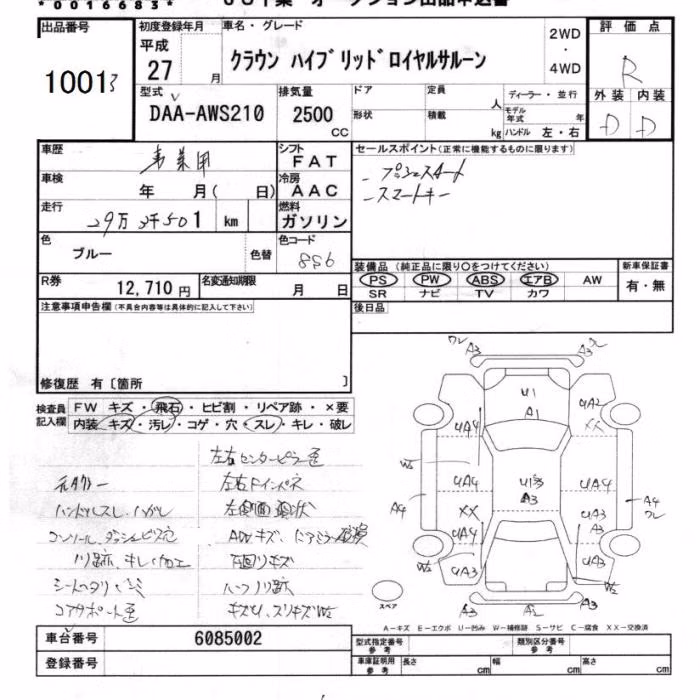 *0016683*
出品番号
10013
初度登録年月
平成
27 月
車名・グレード
クラウン ハイブリッドロイヤルサルーン
2WD
・
4WD
評価点
R
外装 内装
D D
型式
DAA-AWS210
排気量
2500
CC
ドア 定員
人
形状 積載
kg
ディーラー・並行
モデル年式 年
ハンドル 左・右
車歴
事業用
シフト
FAT
車検
年 月( 日)
冷房
AAC
走行
29万3千501 km
燃料
ガソリン
色
ブルー
色替
色コード
8S6
R券
12,710円
名変通知期限
月 日
セールスポイント(正常に機能するものに限ります)
-プッシュスタート
-スマートキー
装備品(純正品に限り○をつけてください)
PS PW ABS エアB AW
SR ナビ TV カワ
新車保証書
有・無
後日品
注意事項申告欄(不具合内容等は具体的に記入して下さい)
修復歴 有〔箇所 〕
検査員記入欄
FW キズ・飛石・ヒビ割・リペア跡・×要
内装・キズ・汚レ・コゲ・穴・スレ・キレ・破レ
左右センターピラー歪
元タクシー
左右ドインパネ
ハンドルスレ・ハガレ
コンソール、ダッシュビス穴
ノリ跡、キレ、加工
下回リキズ
シートヘタリ・シミ
ハーフノリ跡
コアサポート歪
ワレ A3 A3
U1
A1
UA4 UA2
XX
W2
UA4 U1 A3 UA4
A4 XX UA3 A4
A3 ワレ
UA4
W2 UA3 UA3
W2
A3 A2 A3
スペア
A-キズ E-エクボ U-凹み W-補修跡 S-サビ C-腐食 XX-交換済
車台番号
6085002
登録番号
型式指定番号 参考
類別区分番号 参考
車庫証明用 参考
長さ cm 幅 cm 高さ cm